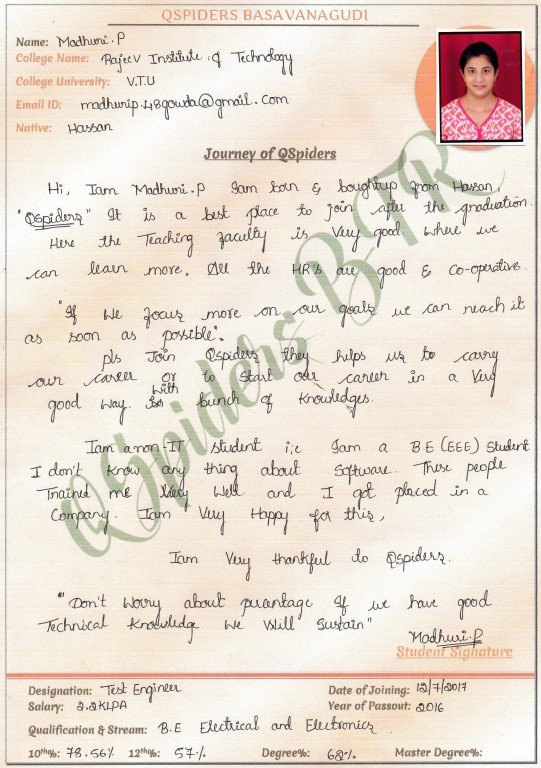 QSPIDERS BASAVANAGUDI
Name: Madhuri.P
College Name: Rajeev Institute of Technology
College University: V.T.U
Email ID: madhurip.48gowda@gmail.com
Native: Hassan
Journey of QSpiders
Hi, Iam Madhuri.P Iam born & boughtup from Hassan,
"QSpiders" It is a best place to join after the graduation.
Here the Teaching faculty is Very good where we
can learn more. All the HR's are good & co-operative.
"If we focus more on our goals we can reach it
as soon as possible".
pls Join QSpiders they helps us to carry
our career or to start our career in a Very
good way. with bunch of knowledges.
Iam a non-IT student i;e Iam a B.E (EEE) student
I don't know any thing about software. These people
Trained me Very Well and I got placed in a
Company. Iam Very Happy for this,
Iam Very thankful to QSpiders.
"Don't Worry about purantage If we have good
Technical Knowledge We Will Sustain"
Madhuri.P
Student Signature
QSpiders BTR
Designation: Test Engineer
Date of Joining: 12/7/2017
Salary: 2.2KLPA
Year of Passout: 2016
Qualification & Stream: B.E Electrical and Electronics
10th%: 78.56% 12th%: 57% Degree%: 68% Master Degree%: